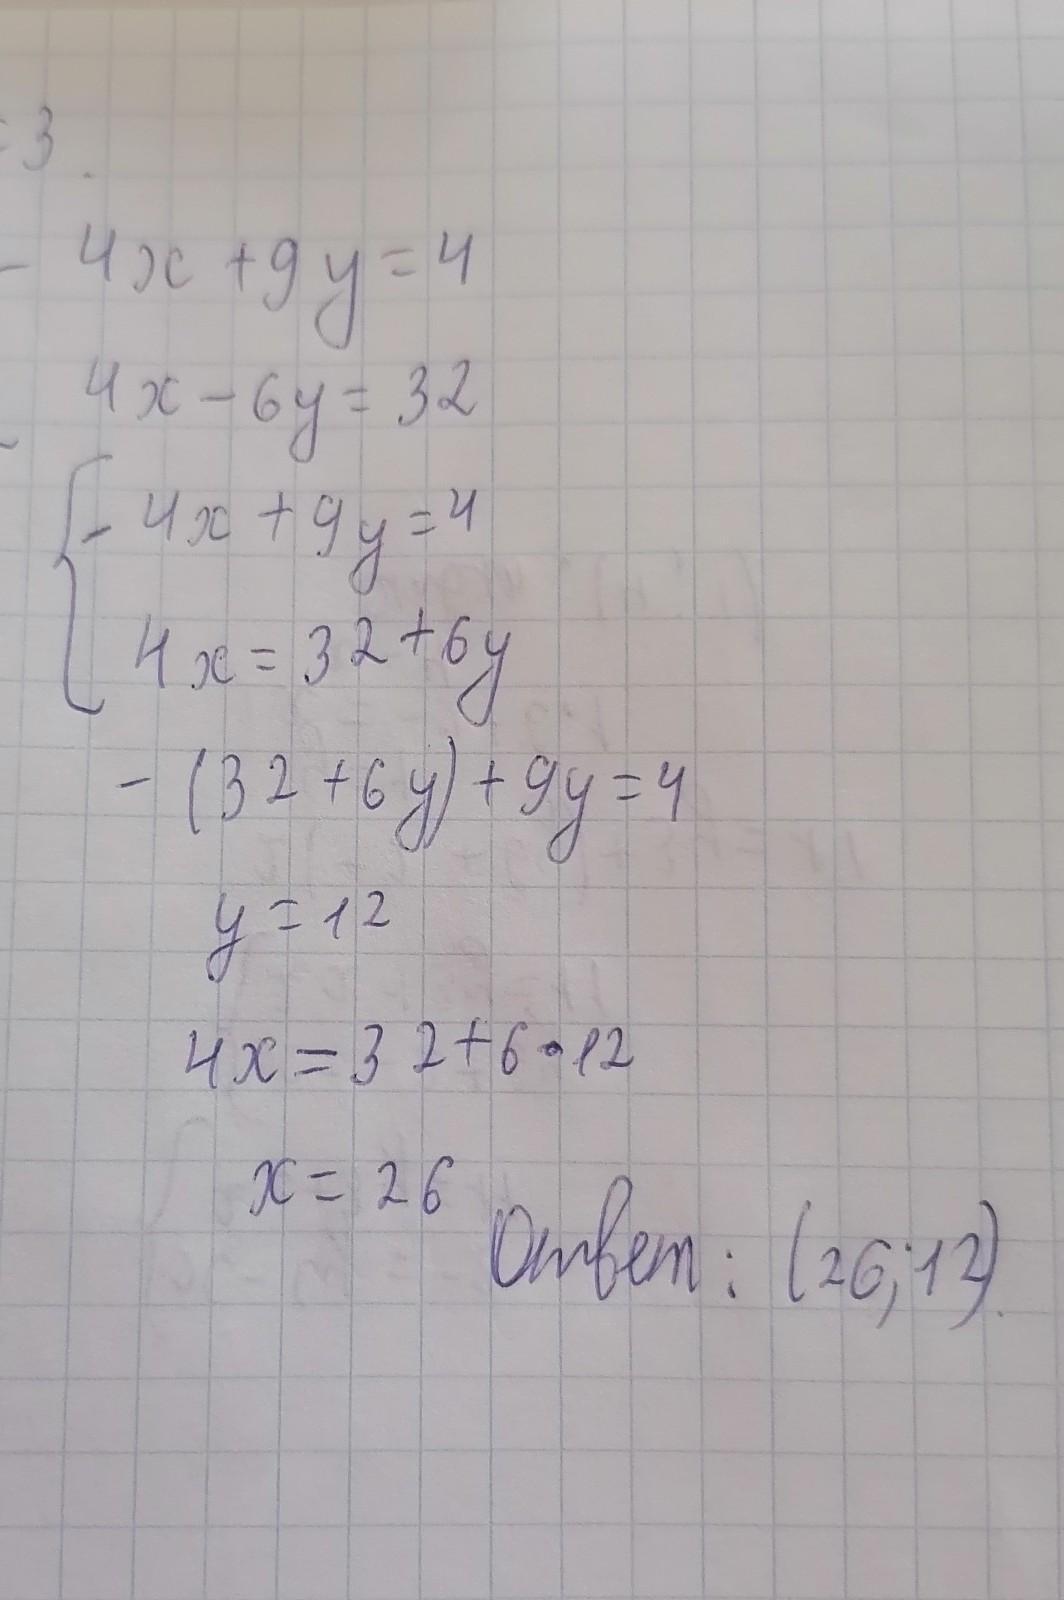 =3.
- 4x + 9y = 4
4x - 6y = 32
{ - 4x + 9y = 4
4x = 32 + 6y
- (32 + 6y) + 9y = 4
y = 12
4x = 32 + 6 • 12
x = 26
Ответ: (26; 12).